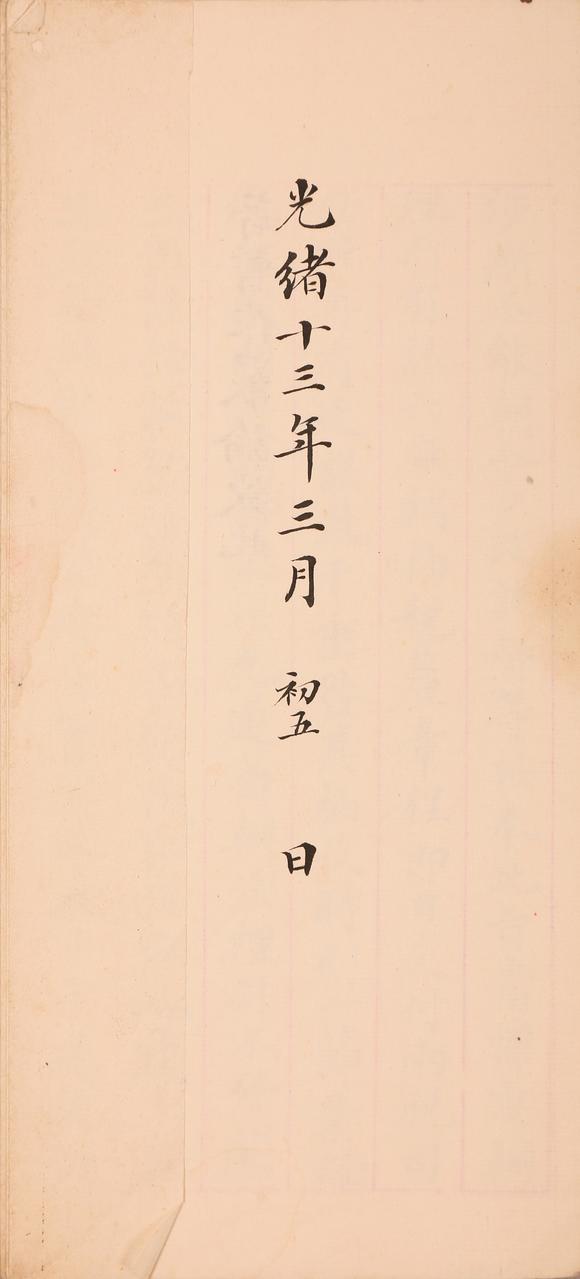 光緒十三年三月初五日